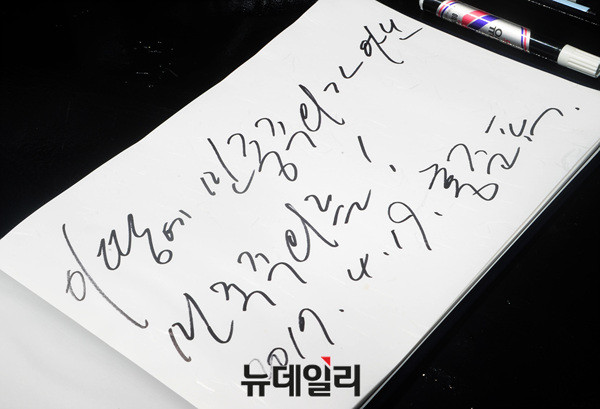 이 땅에 민중주의가 아닌
민주주의를!
2017. 4. 19. 홍준표.
뉴데일리